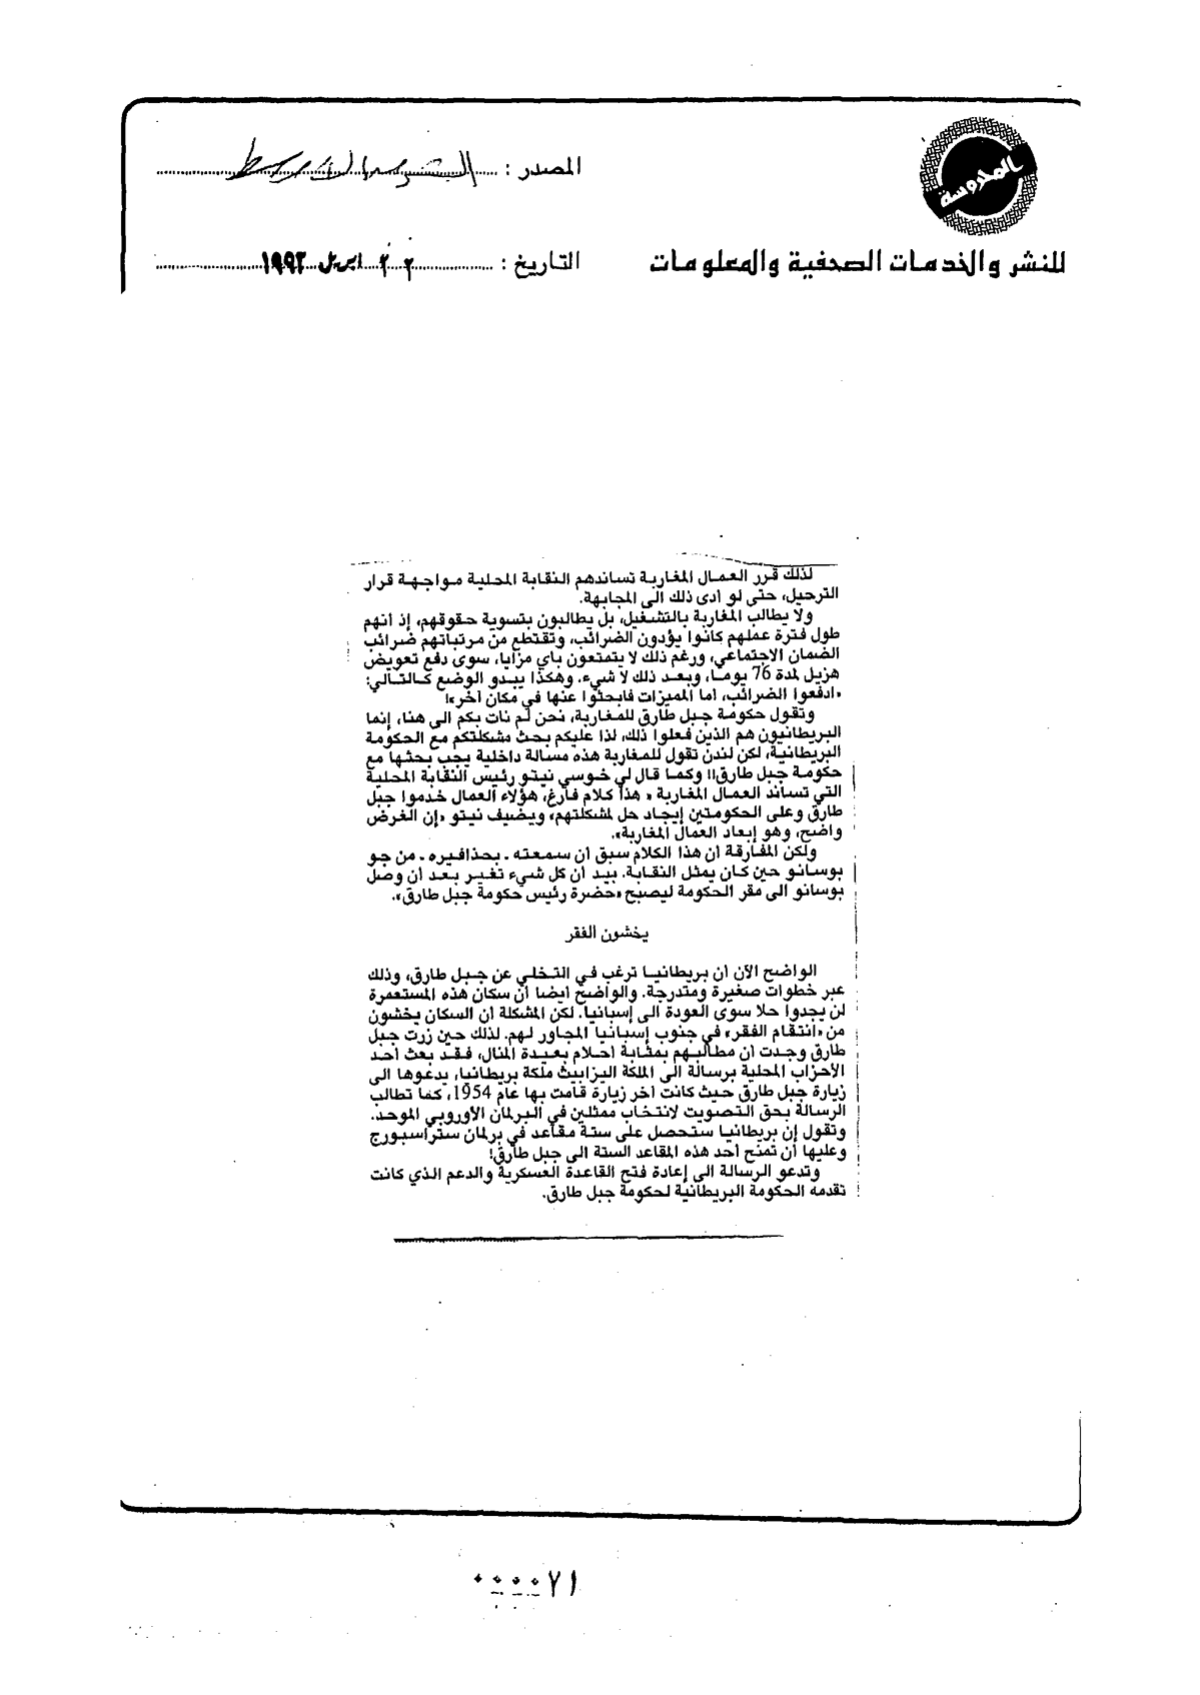 المحروسة
المصدر : الشرق الأوسط
للنشر والخدمات الصحفية والمعلومات
التاريخ : ٢٢ ابريل ١٩٩٢
لذلك قرر العمال المغاربة تساندهم النقابة المحلية مواجهة قرار
الترحيل، حتى لو ادى ذلك الى المجابهة.
ولا يطالب المغاربة بالتشغيل، بل يطالبون بتسوية حقوقهم، إذ انهم
طول فترة عملهم كانوا يؤدون الضرائب، وتقتطع من مرتباتهم ضرائب
الضمان الاجتماعي، ورغم ذلك لا يتمتعون باي مزايا، سوى دفع تعويض
هزيل لمدة 76 يوما، وبعد ذلك لا شيء. وهكذا يبدو الوضع كالتالي:
«ادفعوا الضرائب، اما المميزات فابحثوا عنها في مكان آخر»!
وتقول حكومة جبل طارق للمغاربة، نحن لم نات بكم الى هنا، إنما
البريطانيون هم الذين فعلوا ذلك، لذا عليكم بحث مشكلتكم مع الحكومة
البريطانية، لكن لندن تقول للمغاربة هذه مسالة داخلية يجب بحثها مع
حكومة جبل طارق!! وكما قال لي خوسي نيتو رئيس النقابة المحلية
التي تساند العمال المغاربة « هذا كلام فارغ، هؤلاء العمال خدموا جبل
طارق وعلى الحكومتين إيجاد حل لمشكلتهم» ويضيف نيتو «إن الغرض
واضح، وهو إبعاد العمال المغاربة».
ولكن المفارقة ان هذا الكلام سبق أن سمعته ـ بحذافيره ـ من جو
بوسانو حين كان يمثل النقابة. بيد أن كل شيء تغير بعد أن وصل
بوسانو الى مقر الحكومة ليصبح «حضرة رئيس حكومة جبل طارق».
يخشون الفقر
الواضح الآن أن بريطانيا ترغب في التخلي عن جبل طارق، وذلك
عبر خطوات صغيرة ومتدرجة. والواضح ايضا أن سكان هذه المستعمرة
لن يجدوا حلا سوى العودة الى إسبانيا. لكن المشكلة أن السكان يخشون
من «انتقام الفقر» في جنوب إسبانيا المجاور لهم. لذلك حين زرت جبل
طارق وجدت أن مطالبهم بمثابة احلام بعيدة المنال، فقد بعث احد
الأحزاب المحلية برسالة الى الملكة اليزابيث ملكة بريطانيا، يدعوها الى
زيارة جبل طارق حيث كانت آخر زيارة قامت بها عام 1954، كما تطالب
الرسالة بحق التصويت لانتخاب ممثلين في البرلمان الأوروبي الموحد.
وتقول إن بريطانيا ستحصل على ستة مقاعد في برلمان ستراسبورج
وعليها أن تمنح أحد هذه المقاعد الستة الى جبل طارق!
وتدعو الرسالة الى إعادة فتح القاعدة العسكرية والدعم الذي كانت
تقدمه الحكومة البريطانية لحكومة جبل طارق.
٠٠٠٠٧١